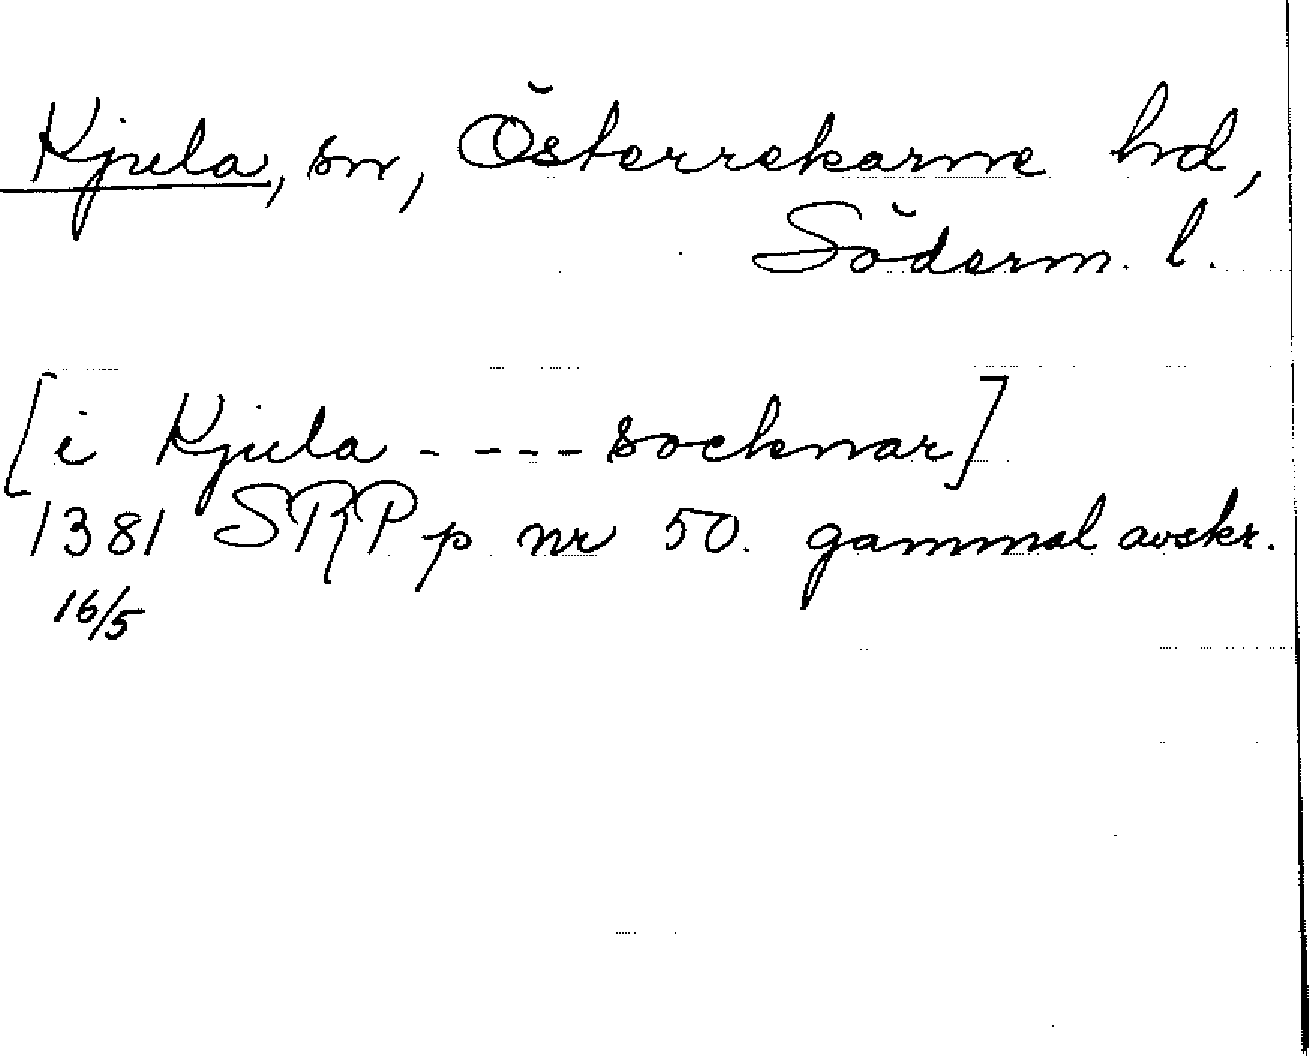 Kjula, sn, Österrekarne hd,
Söderm. l.
[i Kjula - - - - socknar]
1381 SRP p nr 50. gammal avskr.
16/5